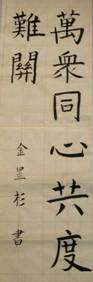 萬衆同心共度
難關
金星杉書